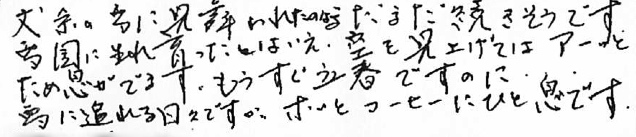 大系の雪に見舞われたのはまだまだ続きそうです
雪国に生れ育ったとはいえ、空を見上げてはアーッと
ため息がでます。もうすぐ立春ですのに・・
雪に追れる日々ですが、ホッとコーヒーにひと息です。